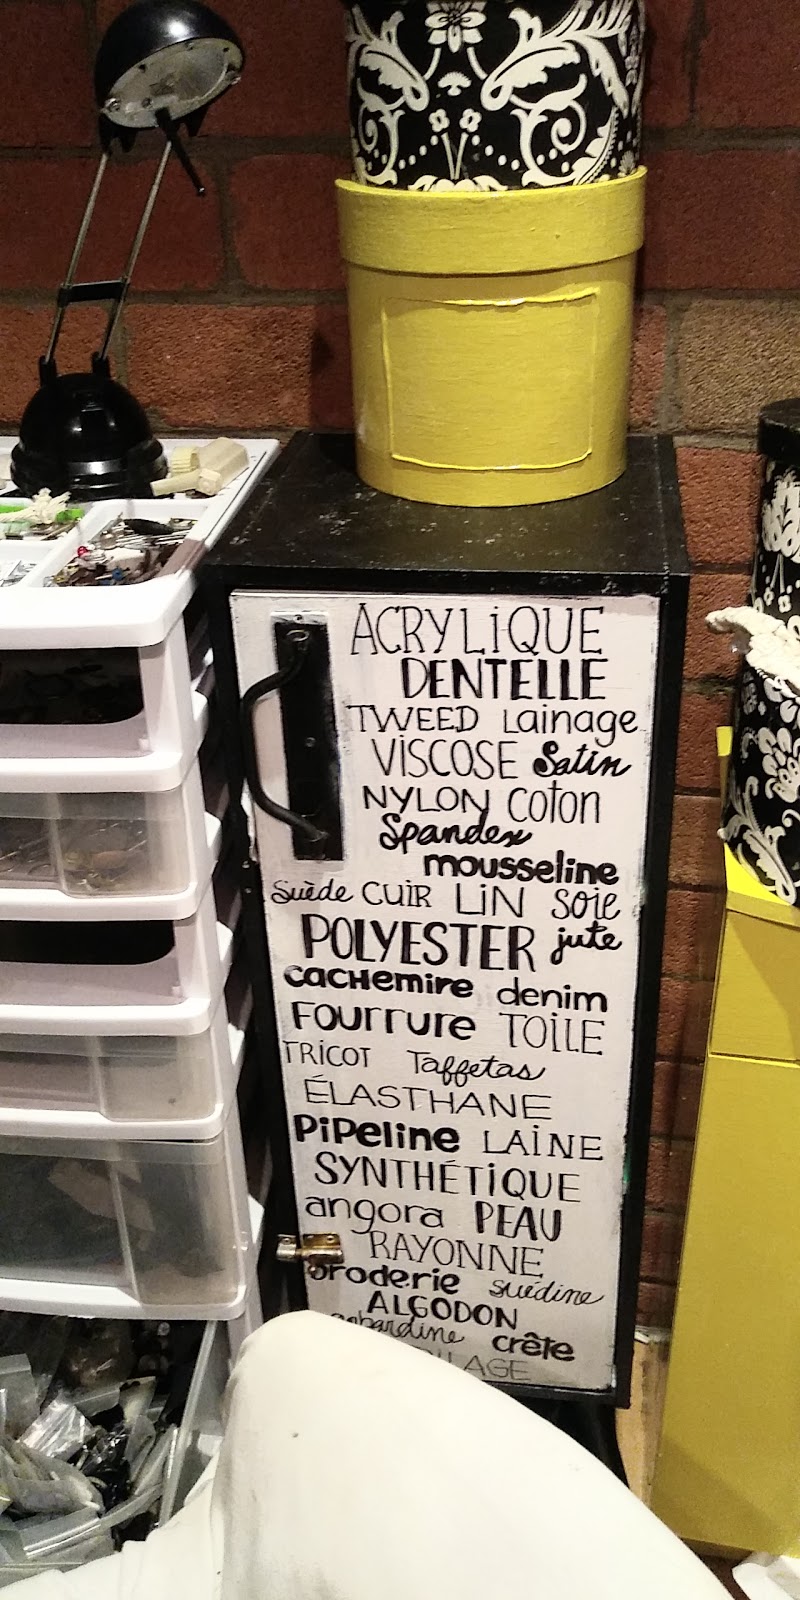 ACRYLiQUE
DENTELLE
TWEED Lainage
VISCOSE Satin
NYLON COTON
Spandex
mousseline
Suède CUIR LiN SOiE
POLYESTER jute
CACHEMiRE denim
FOURRURE TOiLE
TRICOT Taffetas
ÉLASTHANE
PiPeline LAiNE
SYNTHÉTiQUE
angora PEAU
RAYONNE
broderie suédine
ALGODON
gabardine crête